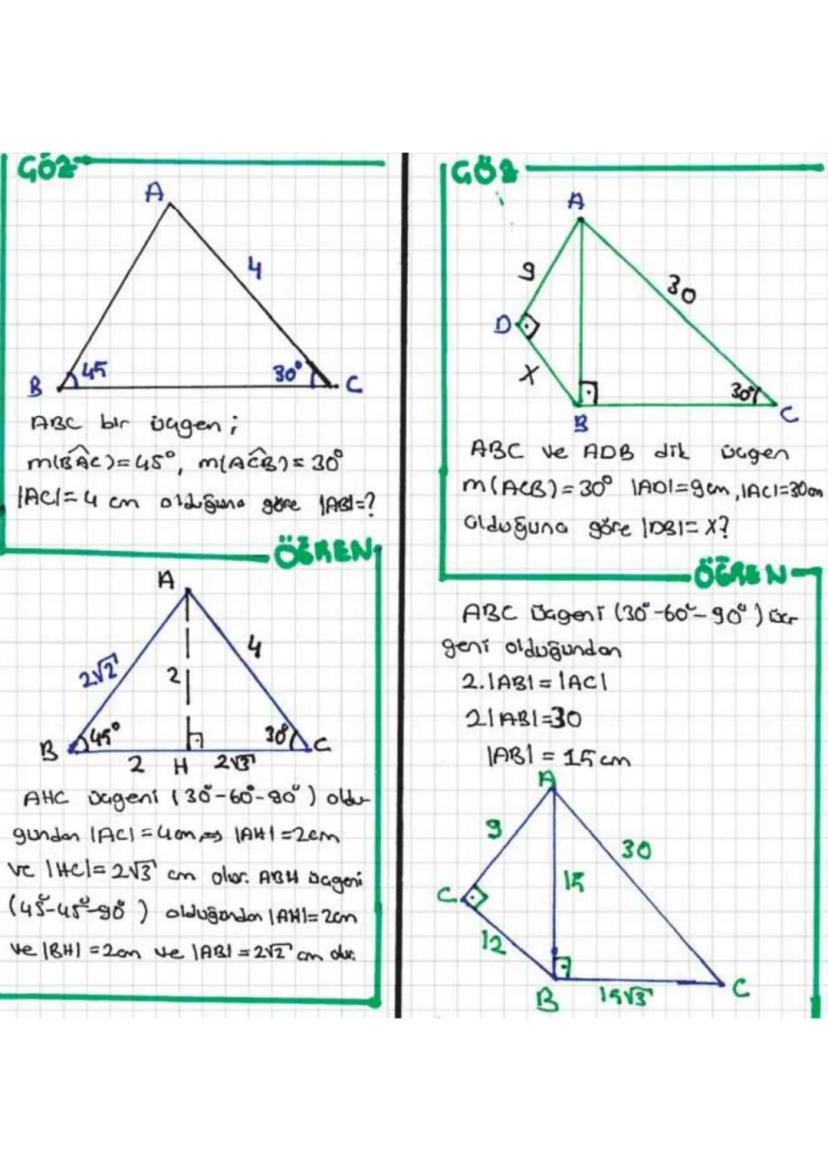 ÇÖZ
A
4
45
30°
B
C
ABC bir üçgen;
m(BÂC)=45°, m(AĈB)=30°
|AC|=4 cm olduğuna göre |AB|=?
ÖĞREN
A
2√2
4
2
45°
30°
B
C
2
H
2√3
AHC üçgeni (30°-60°-90°) oldu-
ğundan |AC|=4cm ⇒ |AH|=2cm
ve |HC|=2√3 cm olur. ABH üçgeni
(45°-45°-90°) olduğundan |AH|=2cm
ve |BH|=2cm ve |AB|=2√2 cm olur.
ÇÖZ
A
9
30
D
X
30°
B
C
ABC ve ADB dik üçgen
m(ACB)=30° |AD|=9cm, |AC|=30cm
olduğuna göre |DB|=X?
ÖĞREN
ABC üçgeni (30°-60°-90°) üç-
geni olduğundan
2.|AB|=|AC|
2|AB|=30
|AB|=15cm
A
9
30
15
C
12
B
15√3
C